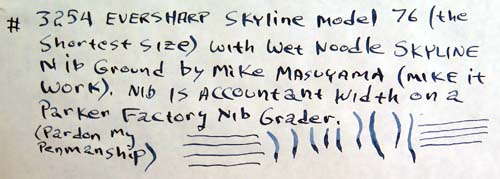 # 3254 EVERSHARP SKyline Model 76 (the
Shortest Size) with Wet Noodle SKYLINE
Nib Ground by Mike MASUYAMA (MIKE it
Work). Nib Is Accountant Width on a
Parker Factory Nib Grader.
(Pardon My
Penmanship)